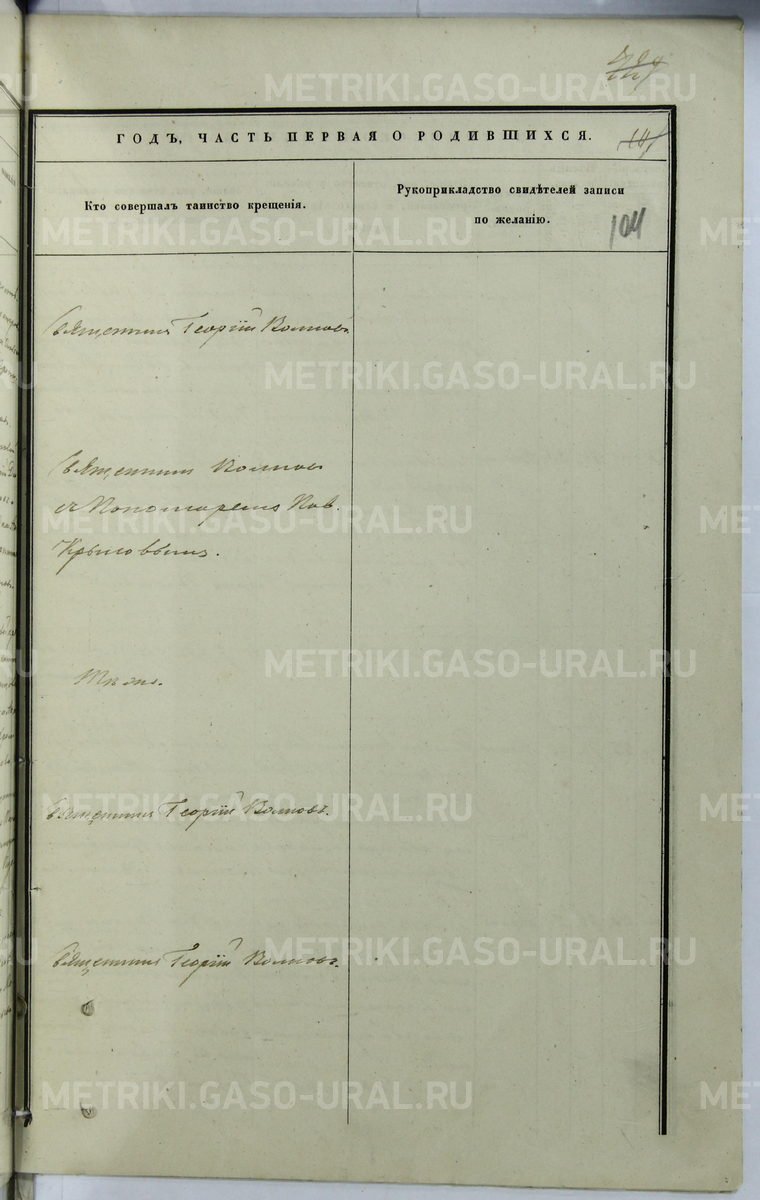 ГОДЪ, ЧАСТЬ ПЕРВАЯ О РОДИВШИХСЯ.
Кто совершалъ таинство крещенія.
Рукоприкладство свидѣтелей записи
по желанію.
104
Священникъ Георгій Волковъ.
Священникъ Волковъ
съ Пономаремъ Пав.
Крыловымъ.
Тѣ же.
Священникъ Георгій Волковъ.
Священникъ Георгій Волковъ.
METRIKI.GASO-URAL.RU